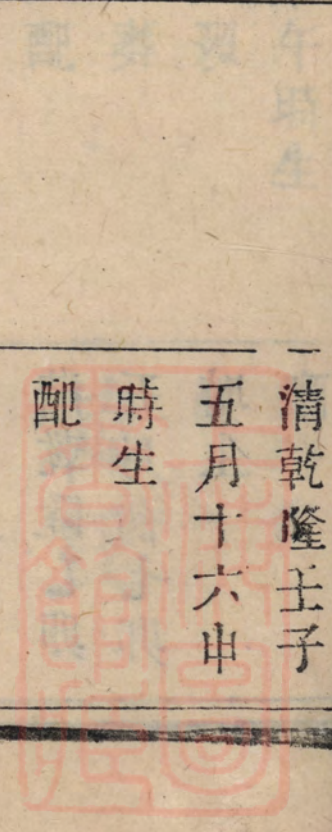 清乾隆壬子
五月十六申
時生
配